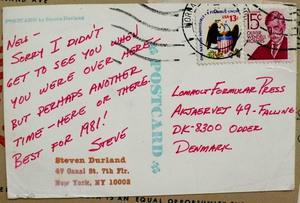 POSTCARD by Steven Durland
NELL-
SORRY I DIDN'T
GET TO SEE YOU WHEN
YOU WERE OVER HERE,
BUT PERHAPS ANOTHER
TIME-HERE OR THERE.
BEST FOR 1981!
STEVE
Steven Durland
49 Canal St. 7th Flr.
New York, NY 10002
POSTCARD
13c
15c
OLIVER
WENDELL
HOLMES
LOMHOLT FORMULAR PRESS
AKTSERVET 49-FALLING
DK-8300 ODDER
DENMARK
IS AN EQUAL OPPORTUNITY